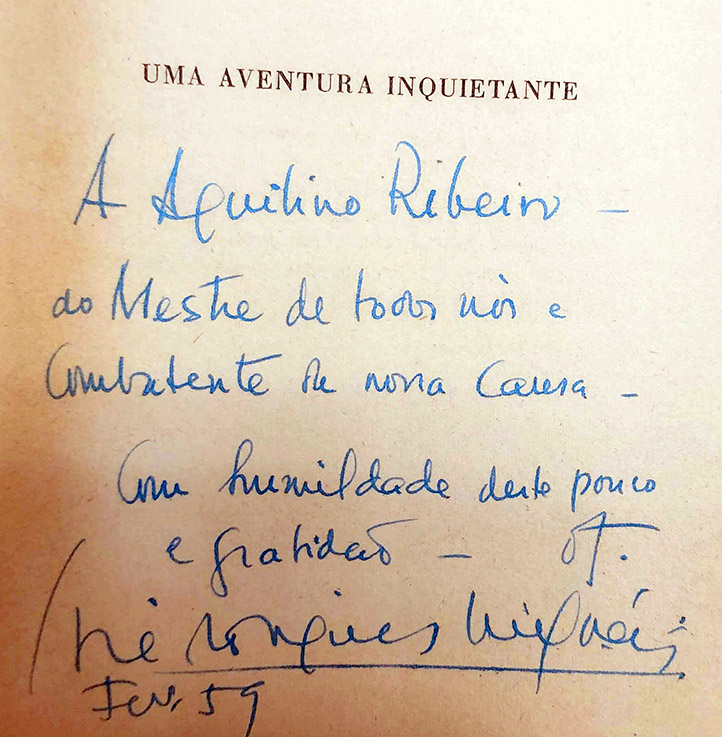 UMA AVENTURA INQUIETANTE
A Aquilino Ribeiro —
ao Mestre de todos nós e
Combatente da nossa Causa —
Com humildade deste pouco
e gratidão —
José Rodrigues Miguéis
Fev. 59